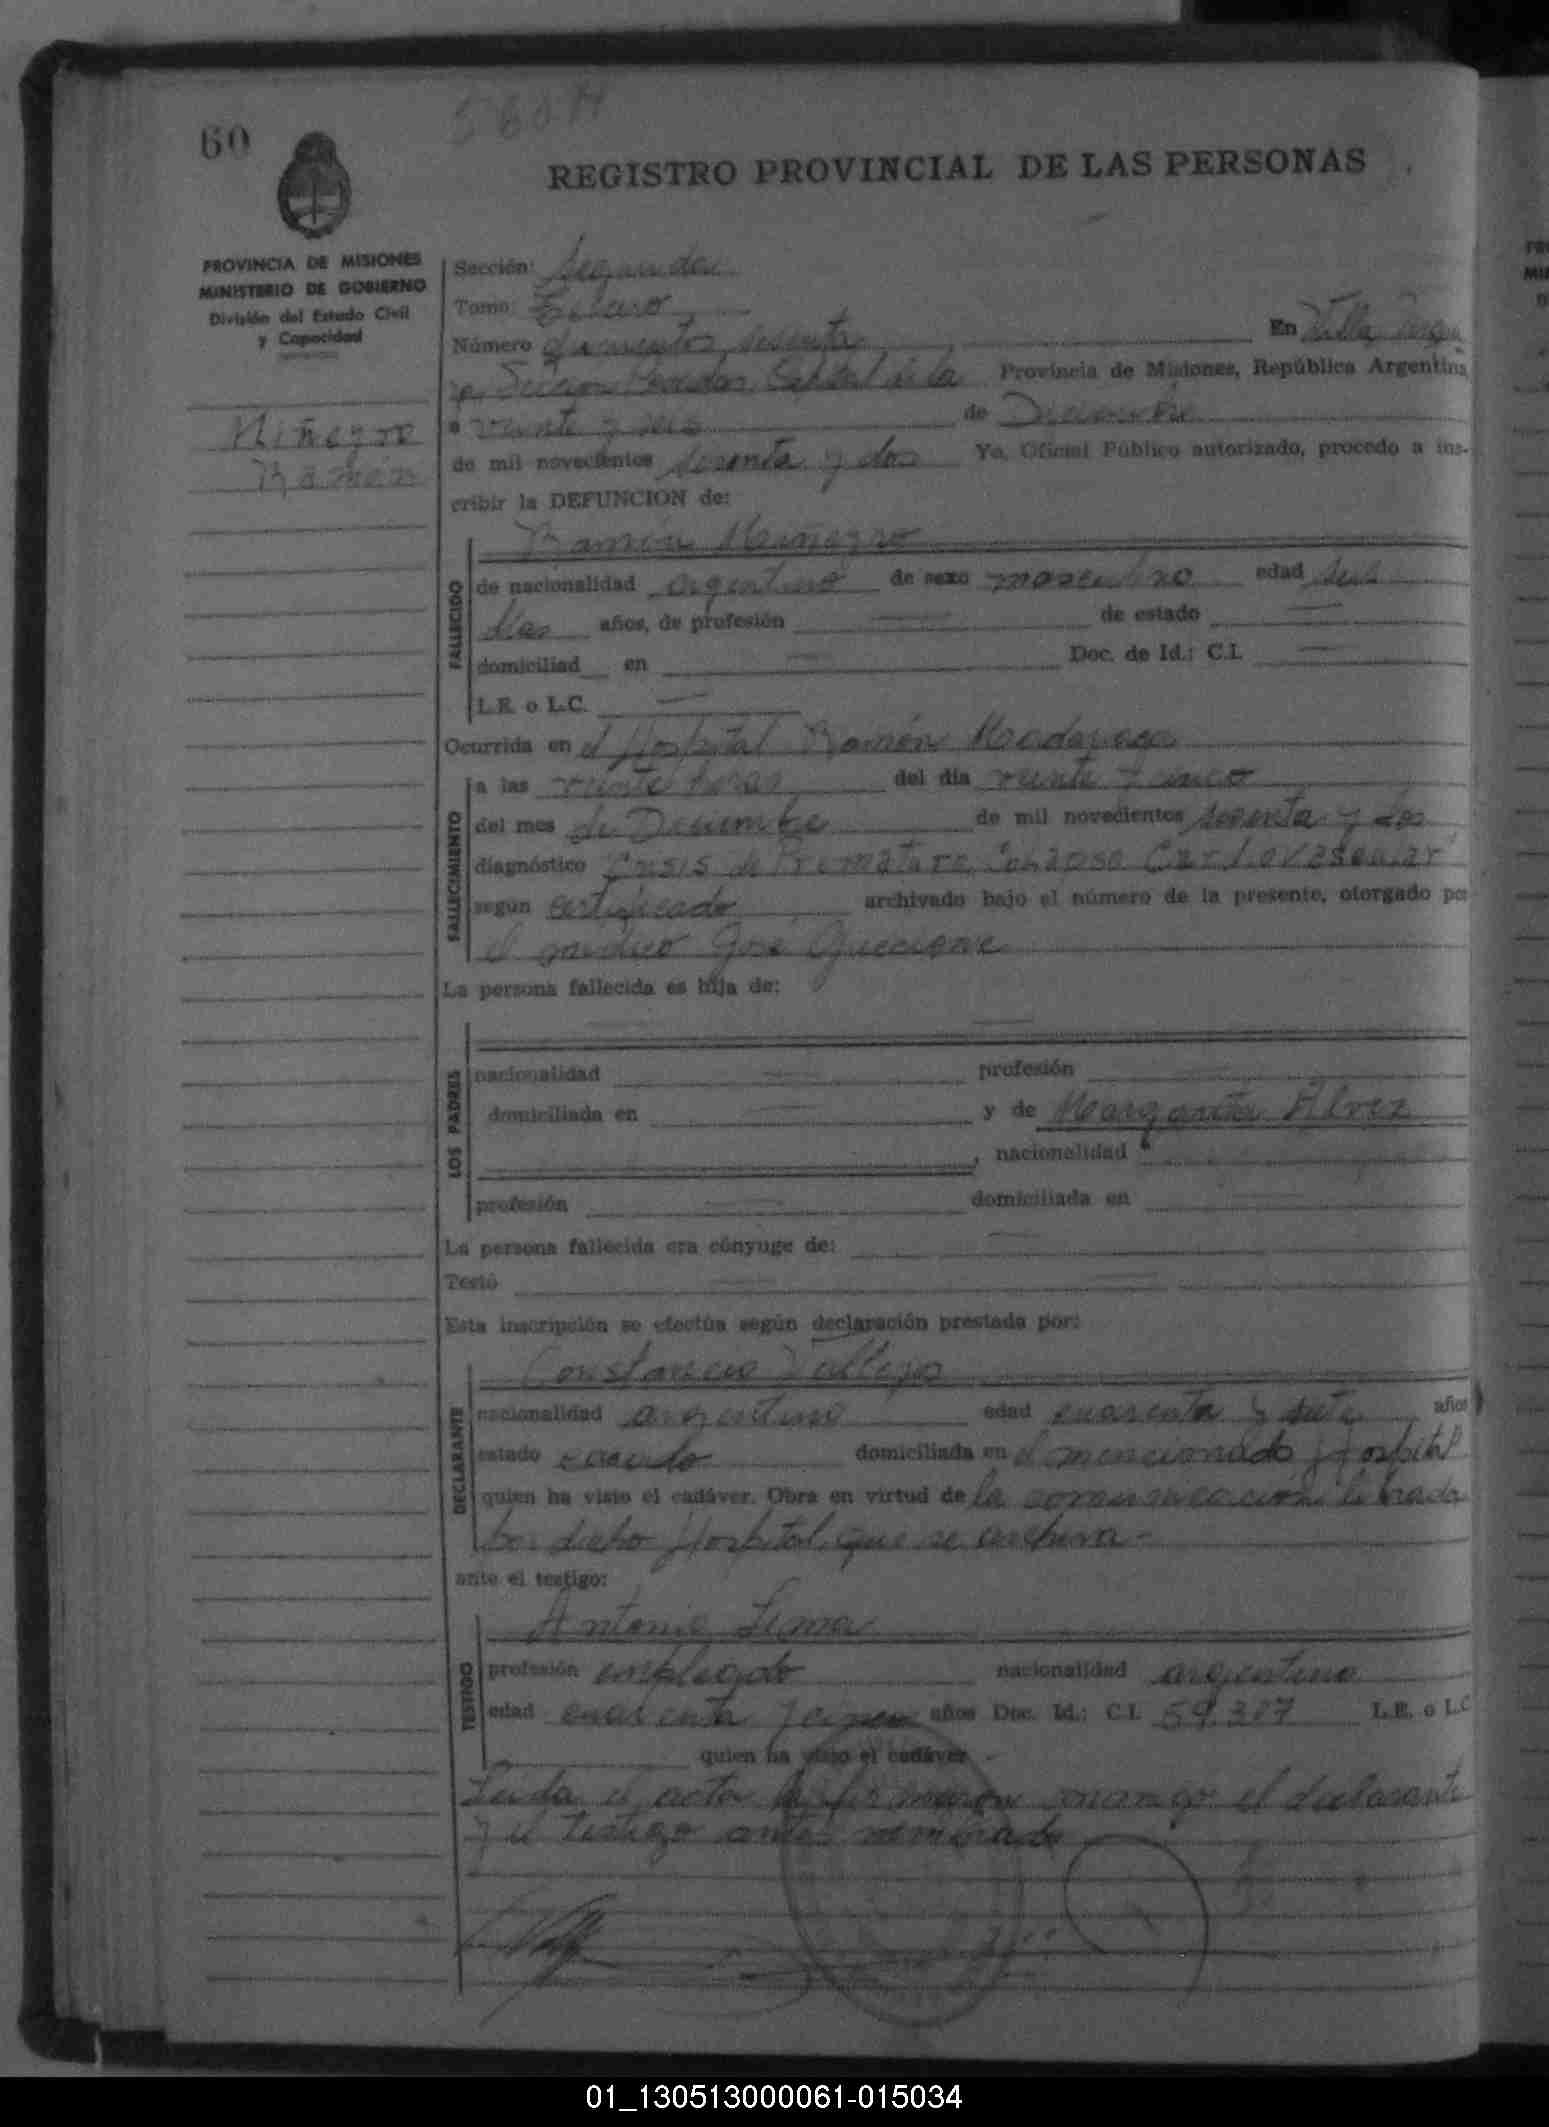 60
REGISTRO PROVINCIAL DE LAS PERSONAS
PROVINCIA DE MISIONES
MINISTERIO DE GOBIERNO
División del Estado Civil
y Capacidad
Niñezro
Ramón
Sección: Segunda
Tomo:
Número doscientos sesenta En Villa
Capital de la Provincia de Misiones, República Argentina
a veinte y seis de Diciembre
de mil novecientos sesenta y dos Yo, Oficial Público autorizado, procedo a ins-
cribir la DEFUNCION de:
Ramón
FALLECIDO
de nacionalidad argentino de sexo masculino edad seis
días años, de profesión — de estado —
domiciliad en — Doc. de Id.: C.I. —
L.E. o L.C. —
Ocurrida en el Hospital Ramón Madariaga
FALLECIMIENTO
a las veinte horas del día veinte y cinco
del mes de Diciembre de mil novecientos sesenta y dos
diagnóstico Crisis de Prematuro Colapso Cardiovascular
según certificado archivado bajo el número de la presente, otorgado por
el médico José Guccione
La persona fallecida es hija de:
— —
LOS PADRES
nacionalidad — profesión —
domiciliada en — y de Margarita Alvez
, nacionalidad
profesión — domiciliada en —
La persona fallecida era cónyuge de: —
Testó — —
Esta inscripción se efectúa según declaración prestada por:
Constancio Vallejos
DECLARANTE
nacionalidad argentino edad cuarenta y siete años
estado casado domiciliada en el mencionado Hospital
quien ha visto el cadáver. Obra en virtud de la comunicación librada
por dicho Hospital, que se archiva-
ante el testigo:
Antonio Lima
TESTIGO
profesión empleado nacionalidad argentino
edad cuarenta y cinco años Doc. Id.: C.I. 59.307 L.E. o L.C
quien ha visto el cadáver -
Leida el acta la firmaron conmigo el declarante
y el testigo antes nombrado
01_130513000061-015034